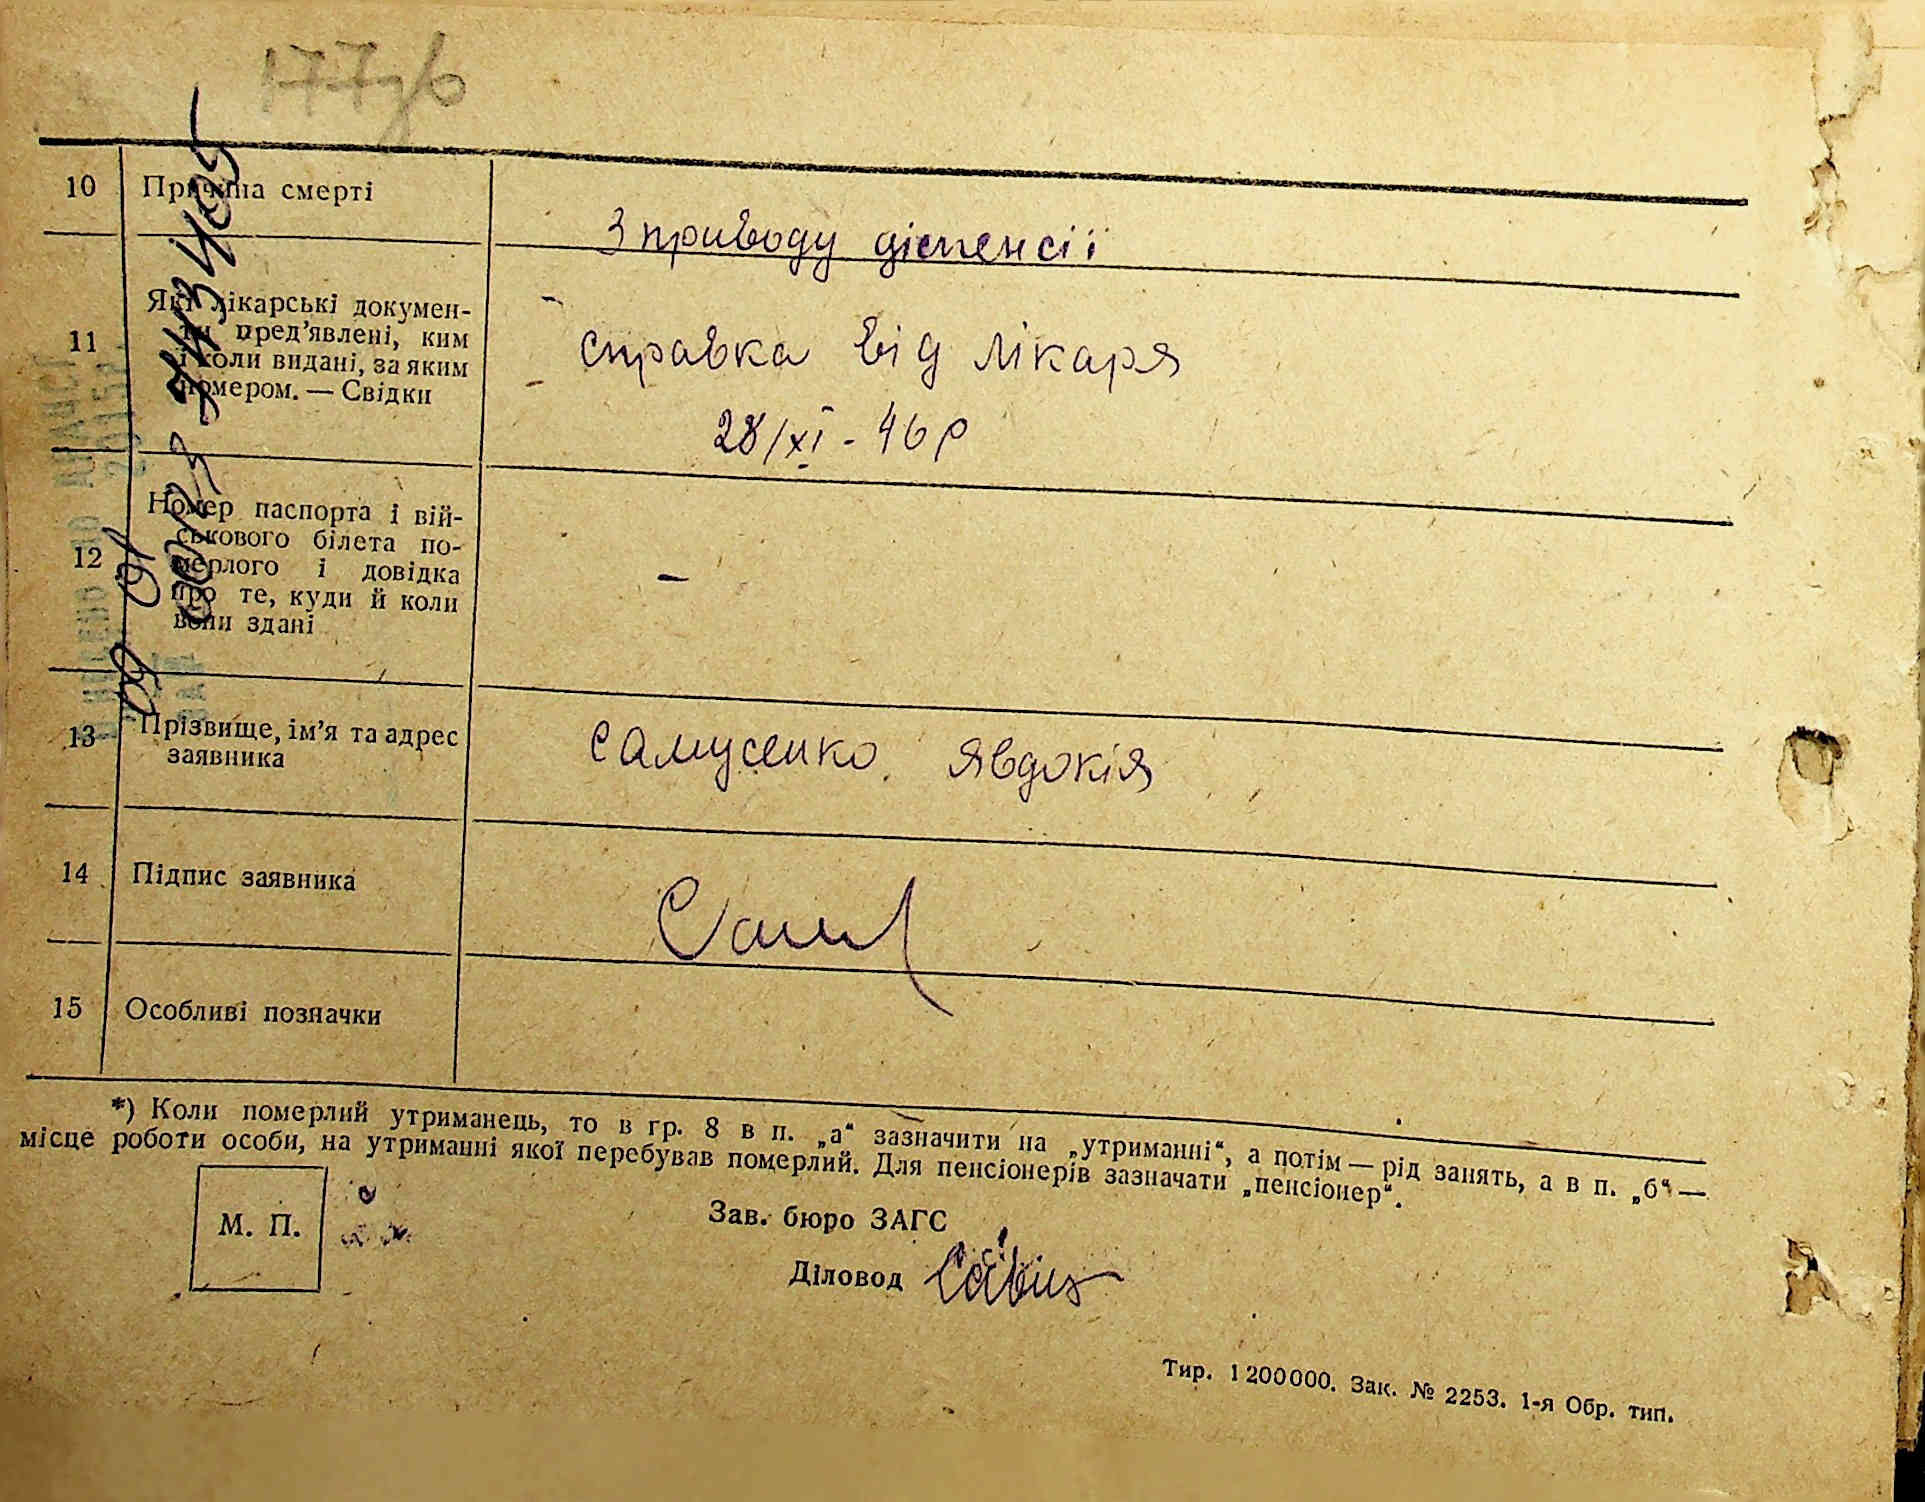 177
10 Причина смерті
З приводу діспенсії
11 Які лікарські докумен-
ти пред’явлені, ким
і коли видані, за яким
номером. — Свідки
справка від лікаря
28/XI - 46 р
12 Номер паспорта і вій-
ськового білета по-
мерлого і довідка
про те, куди й коли
вони здані
–
13 Прізвище, ім’я та адрес
заявника
Самусенко Явдокія
14 Підпис заявника
Сам
15 Особливі позначки
*) Коли померлий утриманець, то в гр. 8 в п. „а“ зазначити на „утриманні“, а потім — рід занять, а в п. „б“ —
місце роботи особи, на утриманні якої перебував померлий. Для пенсіонерів зазначати „пенсіонер“.
М. П.
Зав. бюро ЗАГС
Діловод
Тир. 1 200 000. Зак. № 2253. 1-я Обр. тип.